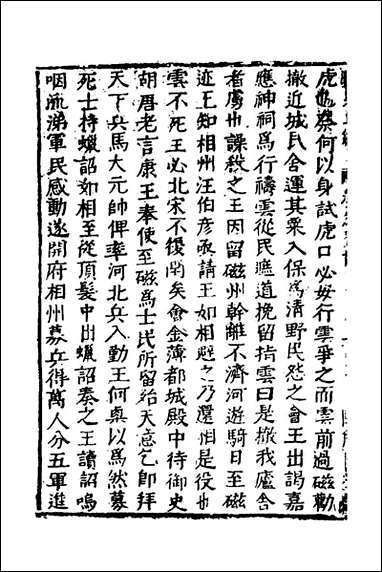 虎也柰何以身試虎口必毋行雲爭之而雲前過磁勸
撤近城民舍運其粟入保爲清野民怨之會王出謁嘉
應神祠爲行禱雲從民瞧道挽留指雲曰是撤我廬舍
者虜也譟殺之王因留磁州幹離不濟河遊騎日至磁
迹王知相州汪伯彥亟請王如相避之乃還相是役也
雲不死王必北宋不復閏矣會金薄都城殿中待御史
胡唇老言康王奉使至磁爲士民所留殆天意乞卽拜
天下兵馬大元帥俾率河北兵入勤王何㮚以爲然募
死士持蠟詔如相至從頂髮中出蠟詔奏之王讀詔嗚
咽流涕軍民感動遂開府相州募兵得萬人分五軍進